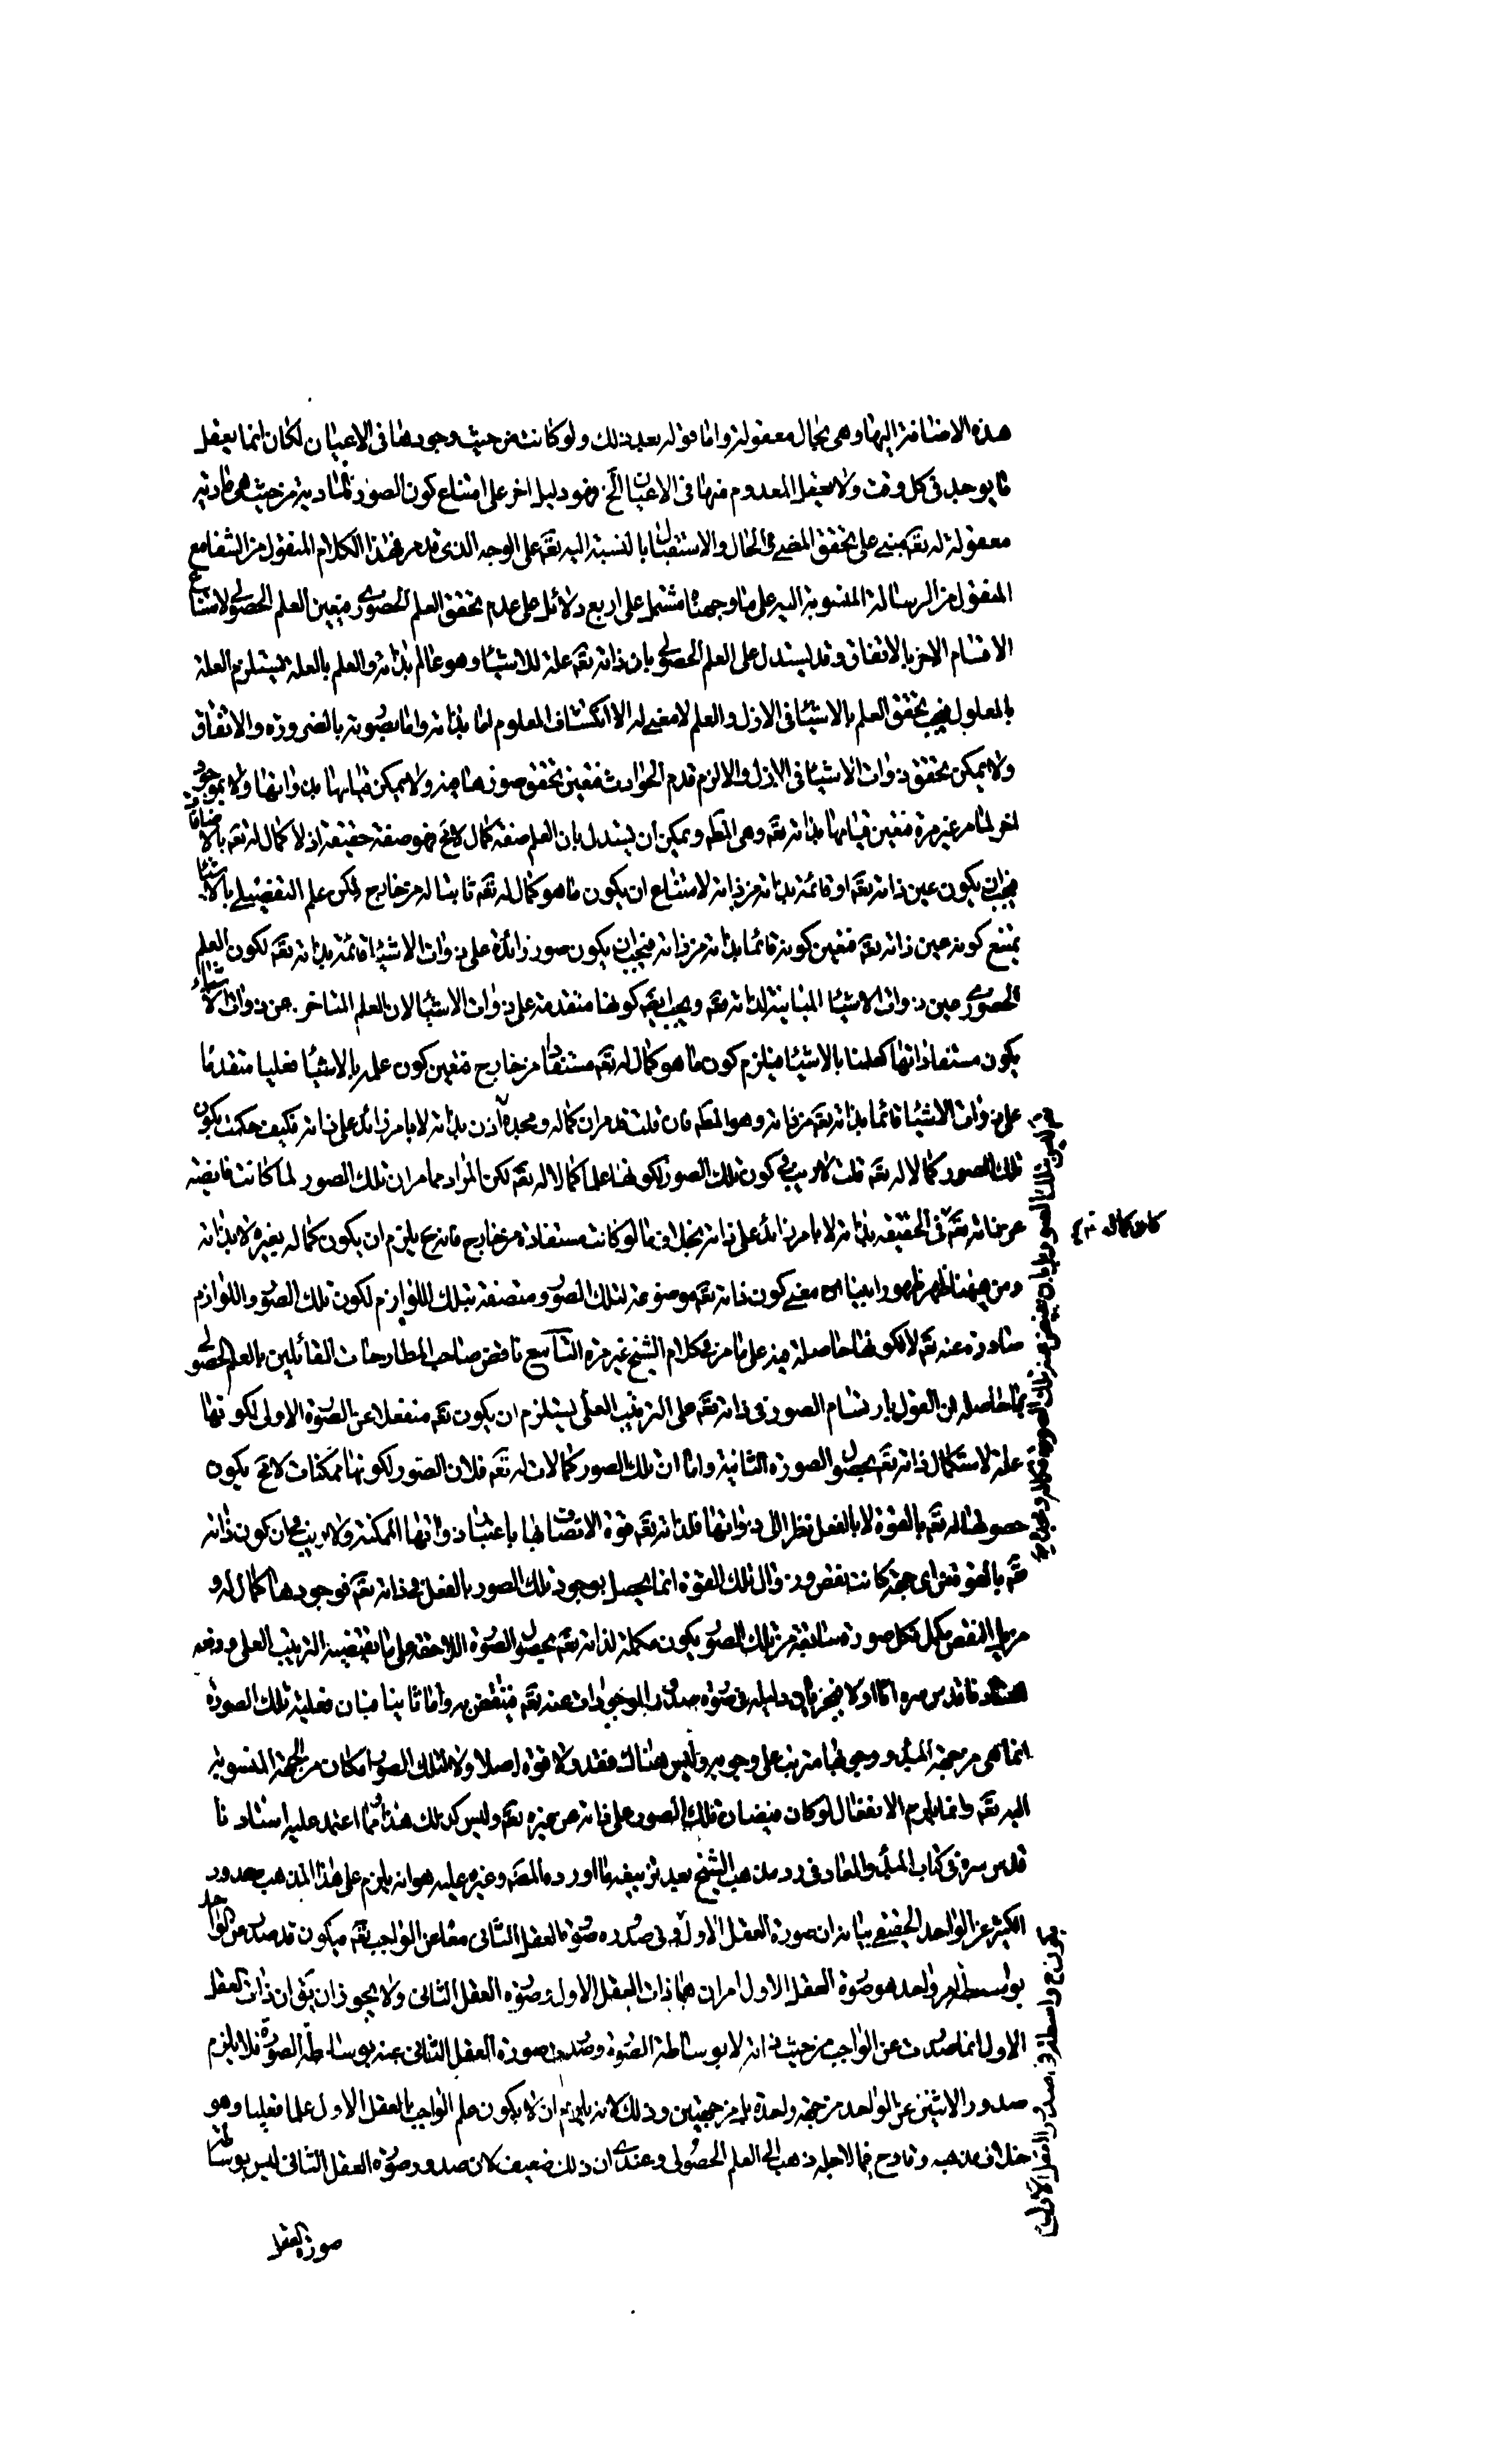 هذه الاضافة اليها وهى بحال معقولة واما قوله بعد ذلك ولو كانت من حيث وجودها فى الاعيان لكان انما يعقل
ما يوجد فى كل وقت ولا يعقل المعدوم منها فى الاعيان الخ فهو دليل اخر على امتناع كون الصور المادية من حيث هى مادية
معقولة له تقه مبنى على تحقق المضى و الحال والاستقبال بالنسبة اليه تقه على الوجه الذى قد مر فهذا الكلام المنقول من الشفا مع
المنقول من الرسالة المنسوبة اليه على ما وجهناه مشتمل على اربع دلائل على عدم تحقق العلم الحضورى فتعين العلم الحصولى لامتناع
الاقسام الاخر بالاتفاق وقد يستدل على العلم الحصولى بان ذاته تقه علة للاشيا وهو عالم بذاته والعلم بالعلة يستلزم العلة
بالمعلول فيجب تحقق العلم بالاشيا فى الازل والعلم لا معنى له الا انكشاف المعلوم اما بذاته واما بصورته بالضرورة والاتفاق
ولا يمكن تحقق ذوات الاشيا فى الازل والا لزم قدم الحوادث فتعين تحقق صورها فيه ولا يمكن قيامها بذواتها ولا بموجود
اخر لما مر غير مرة فتعين قيامها بذاته تقه وهى المط ويمكن ان يستدل بان العلم صفة كمال لا مح فهو صفة حقيقة اذ لا كمال له تقه بالاضافات
فيجب ان يكون عين ذاته تقه او قائمة بذاته من ذاته لامتناع ان يكون ما هو كمال له تقه ثابتا له من خارج لكن علم التفصيلى بالاشيا
يمتنع كونه عين ذاته تقه فتعين كونه قائما بذاته من ذاته فيجب ان يكون صور زائدة على ذوات الاشيا قائمة بذاته تقه لكون العلم
الحضورى عين ذوات الاشيا المباينة لذاته تقه ويجب ايضه كونها متقدمة على ذوات الاشيا لان العلم المتاخر عن ذوات الاشياء
يكون مستفادا منها كعلمنا بالاشيا فيلزم كون ما هو كمال له تقه مستفادا من خارج فتعين كون علمه بالاشيا فعليا متقدما
على ذوات الاشيا قائما بذاته تقه من ذاته وهو المط فان قلت قد مر ان كماله ومجده اذن بذاته لا بامر زائد على ذاته فكيف حكمت بكون
تلك الصور كمالا له تقه قلت لا ريب فى كون تلك الصور لكونها علما كمالا له تقه لكن المراد مما مر ان تلك الصور لما كانت فايضة
عن ذاته تقه فى الحقيقة بذاته لا بامر زائد على ذاته بخلاف ما لو كانت مستفادة من خارج فانه ح يلزم ان يكون كماله بغيره لا بذاته
ومن هيهنا ظهر ظهورا بينا ان معنى كون ذاته تقه موضوعة لتلك الصور ومتصفة بتلك اللوازم لكون تلك الصور واللوازم
صادرة عنه تقه لا لكونها حاصلة فيه على ما مر فى كلام الشيخ غير مرة التاسع ناقض صاحب المطارحات القائلين بالعلم الحصولى
بما حاصله ان القول بارتسام الصور فى ذاته تقه على الترتيب العلى يستلزم ان يكون تقه منفعلا عن الصورة الاولى لكونها
علة لاستكمال ذاته تقه بحصول الصورة الثانية واما ان تلك الصور كمالات له تقه فلان الصور لكونها ممكنات لا مح يكون
حصولها له تقه بالقوة لا بالفعل نظرا الى ذواتها فلذاته تقه قوة الاتصاف بها باعتبار ذواتها الممكنة ولا ريب فى ان كون ذاته
تقه بالقوة من اى جهة كانت نقص وزوال تلك القوة انما يحصل بوجود تلك الصور بالفعل فى ذاته تقه فوجودها كمال له و
مزيل النقص مكمل فكل صورة سابقة من تلك الصور يكون مكملة لذاته تقه بحصول الصورة اللاحقة على ما يقتضيه الترتيب العلى ودفعه
استادنا قدس سره اما اولا فبجريان دليله فى صورة صدور الموجودات عنه تقه فينتقض به واما ثانيا فبان فعلية تلك الصورة
انما هى من جهة المبدء ووجوبها مترتب على وجوبه وليس هناك فقد ولا قوة اصلا ولا لتلك الصور امكان من الجهة المنسوبة
اليه تقه وانما يلزم الانفعال لو كان فيضان تلك الصور على ذاته من غيره تقه وليس كذلك هذا مما اعتمد عليه استادنا
قدس سره فى كتاب المبدء والمعاد فى رد مذهب الشيخ بعد تزييف ما اورده المصه وغيره عليه هو انه يلزم على هذا المذهب صدور
الكثير عن الواحد الحقيقى بيانه ان صورة العقل الاول فى صدوره صورة العقل الثانى معا عن الواجب تقه فيكون قد صدر عن الواحد
بواسطة امر واحد هو صورة العقل الاول امران هما ذات العقل الاول وصورة العقل الثانى ولا يجوز ان يق ان ذات العقل
الاول انما صدرت عن الواجب من حيث ذاته لا بوساطة الصورة وصدر صورة العقل الثانى عنه بوساطة الصورة فلا يلزم
صدور الاثنين عن الواحد من جهة واحدة بل من جهتين وذلك لانه يلزم ان لا يكون علم الواجب بالعقل الاول علما فعليا وهو
خلاف مذهبه وقادح فيما لاجله ذهب الى العلم الحصولى وعندى ان ذلك ضعيف لان صدور صورة العقل الثانى ليس بوساطة
صورة العقل